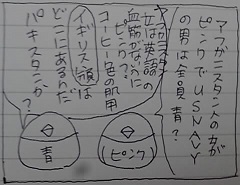 アフガニスタン人の女が
ピンクでUSNAVY
の男は全員青?
アフガニスタン
女は英語の
血筋がなかに
ピンク?
コーヒー色の肌用
イギリス領は
どこにあるんだ
パキスタンか?
ピンク
青